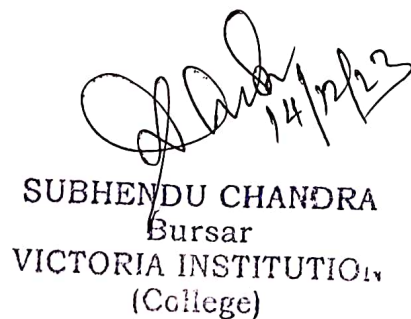 14/12/23
SUBHENDU CHANDRA
Bursar
VICTORIA INSTITUTION
(College)